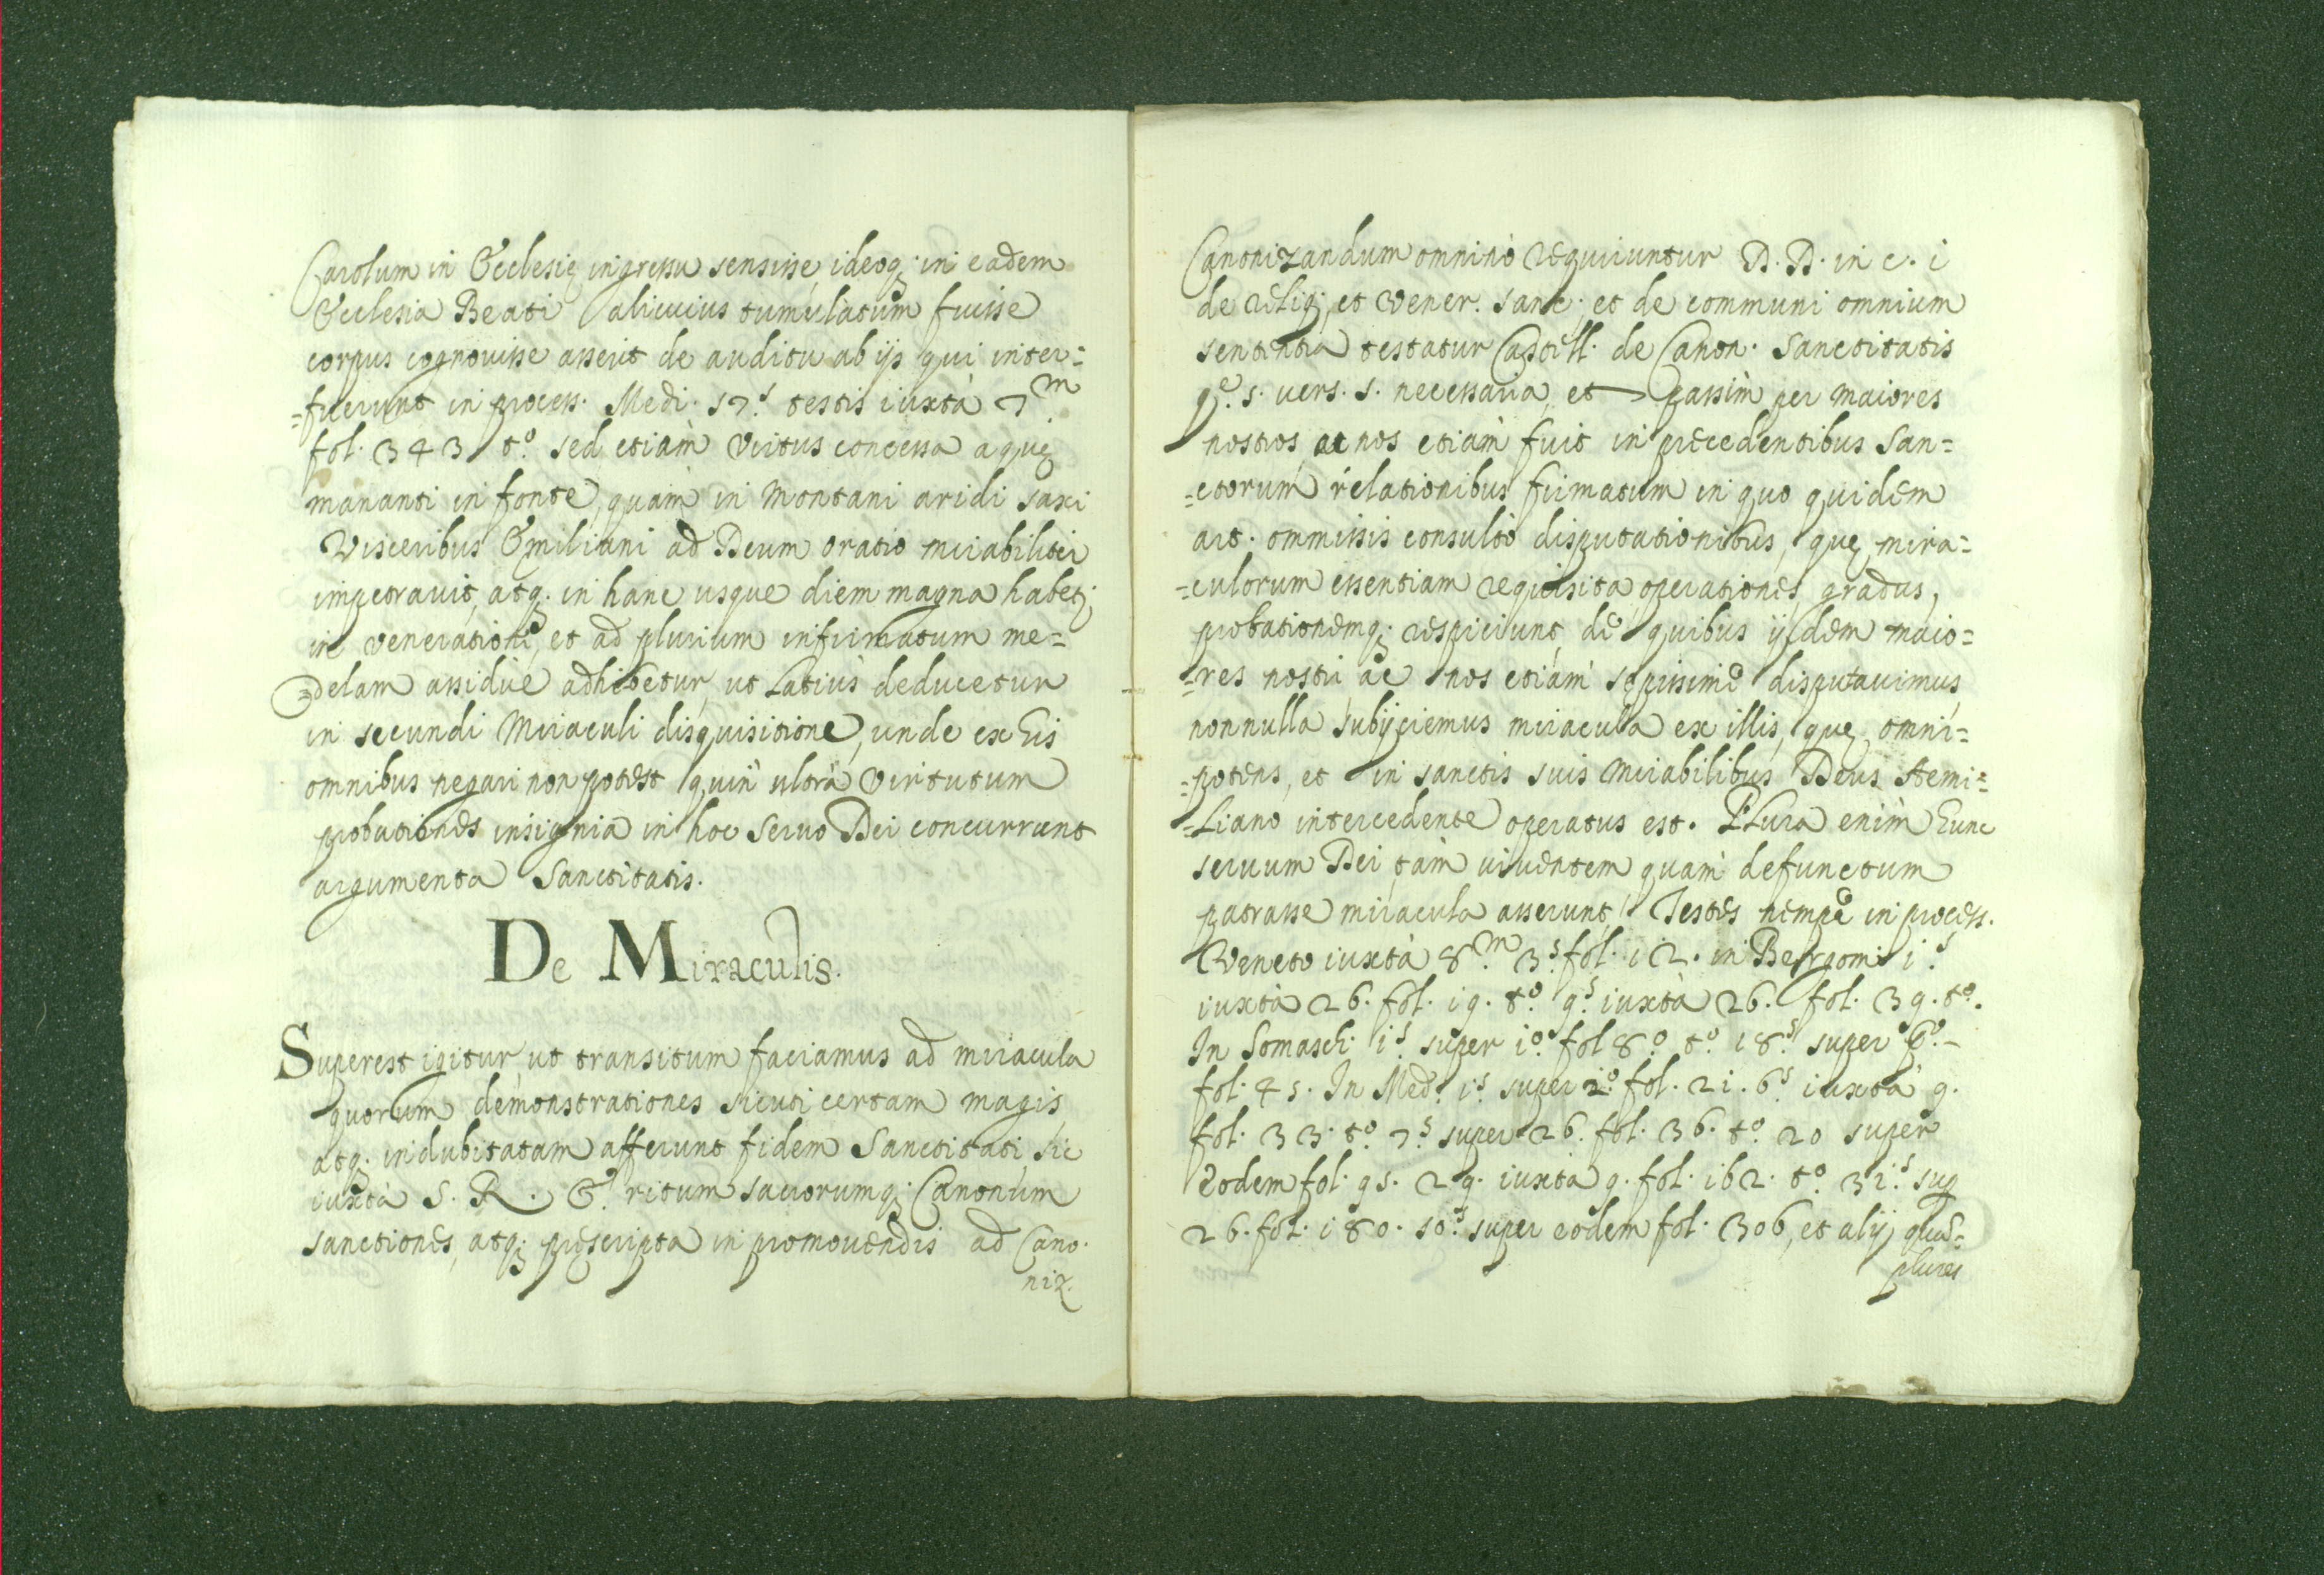 Carolum in Ecclesię ingressu sensisse, ideoq; in eadem
Ecclesia Beati alicuius tumulatum fuisse
corpus cognouisse asserit de auditu ab ijs qui inter=
=fuerunt in process. Medi. 57.s testis iuxtà 7.m
fol. 343 t.o sed etiàm virtus concessa aquę
mananti in fonte, quàm in montani aridi saxi
visceribus Emiliani ad Deum oratio mirabiliter
impetrauit, atq; in hanc usque diem magna habet;
in veneratione, et ad plurium infirmatum me=
=delam assiduè adhibetur, ut latiùs deducetur
in secundi Miraculi disquisitione, unde ex his
omnibus negari non potest quin ultrà virtutum
probationes insignia in hoc seruo Dei concurrant
argumenta Sanctitatis.
De Miraculis.
Superest igitur, ut transitum faciamus ad miracula
quorum demonstrationes sicuti certam magis,
atq; indubitatam afferunt fidem Sanctitati, sic
iuxtà S. R. E. ritum sacrorumq; Canonum
sanctiones, atq; pręscripta in promouendis ad Cano.
niz.
Canonizandum omninò requiruntur D. D. in c. i
de reliq; et vener. sanc. et de communi omnium
sententia testatur Castell. de Canon. Sanctitatis
q.e s. uers. s. necessaria, et passìm per maiores
nostros, ac nos etiàm fuit in pręcedentibus San=
=ctorum relationibus firmatum in quo quidem
art. ommissis consultò disputationibus, quę mira=
=culorum essentiam requisita operationes, gradus,
probationemq; respiciunt, de quibus ijdem maio=
=res nostri ac nos etiàm sępissimè disputauimus,
nonnulla subijciemus miracula ex illis, quę, omni=
=potens, et in sanctis suis mirabilibus Deus Aemi=
=liano intercedente operatus est. Plura enìm hunc
seruum Dei tàm uiuentem quàm defunctum
patrasse miracula asserunt Testes nempè in process.
Veneto iuxtà 8.m 3.s fol. i2. in Bergom. i.s
iuxtà 26. fol. i9. t.o 9.s iuxtà 26. fol. 39. t.o.
In Somasch. i.s super i.o fol 8.o t.o i8.s super 6.o -
fol. 45. In Med. i.s super 2.o fol. 2i. 6.s iuxtà 9.
fol. 33. t.o 7.s super 26. fol. 36. t.o 20 super
eodem fol. 95. 29. iuxtà 9. fol. i62. t.o 3i.s sup
26. fol. i80. 50.s super eodem fol. 306, et alij quā=
plures